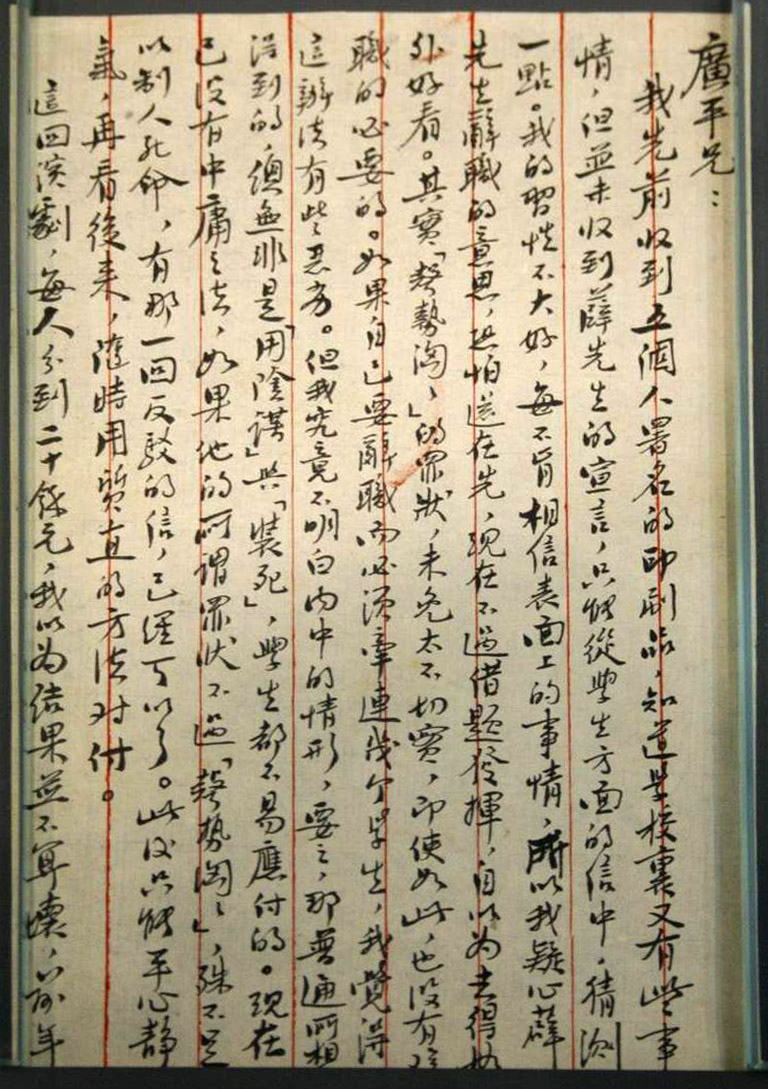 廣平兄：
我先前收到五個人署名的印刷品，知道學校裏又有些事
情，但並未收到薛先生的宣言，只能從學生方面的信中，猜測
一點。我的習性不大好，每不肯相信表面上的事情，所以我疑心薛
先生辭職的意思，恐怕還在先，現在不過借題發揮，自以為去得如
外好看。其實「聲勢洶〻」的罪狀，未免太不切實，即使如此，也沒有
職的必要的。如果自己要辭職而必須牽連幾个學生，我覺得
這辦法有些惡劣。但我究竟不明白內中的情形，要之，那普通所想
得到的，總無非是「用陰謀」與「裝死」，學生都不易應付的。現在
已沒有中庸之法，如果他的所謂罪狀不過「聲勢洶〻」，殊不足
以制人死命，有那一回反駁的信，已經可以了。此後只能平心靜
氣，再看後來，隨時用質直的方法对付。
這回演劇，每人分到二十餘元，我以為結果並不算壞，前年